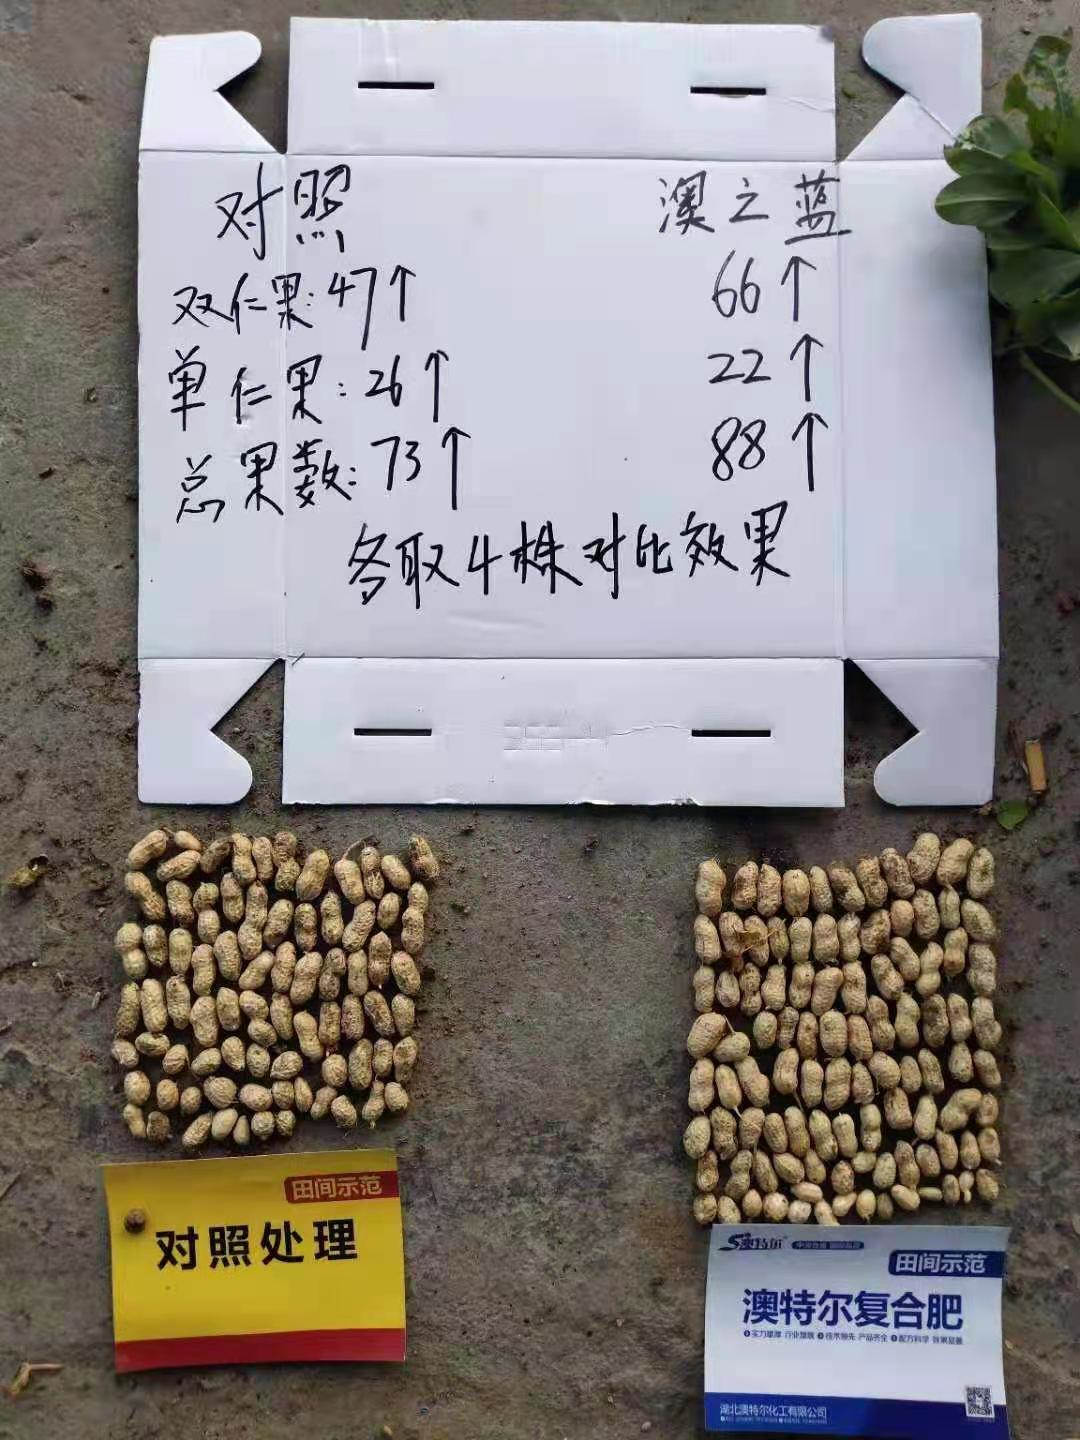 对照
澳之蓝
双仁果:47个
66个
单仁果:26个
22个
总果数:73个
88个
各取4株对比效果
田间示范
对照处理
澳特尔
田间示范
澳特尔复合肥
实力雄厚 行业旗舰 技术领先 产品齐全 配方科学 效果显著
湖北澳特尔化工有限公司